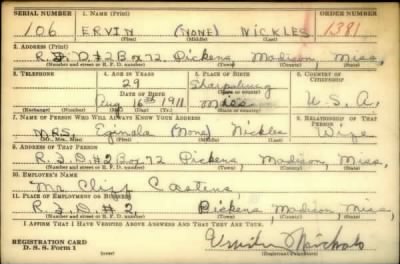 SERIAL NUMBER 1. NAME (Print) ORDER NUMBER
106 ERVIN (NONE) NICKLES 1381
(First) (Middle) (Last)
2. ADDRESS (Print)
R.F.D.#2 Box 72 Pickens Madison, Miss.
(Number and street or R. F. D. number) (Town) (County) (State)
3. TELEPHONE 4. AGE IN YEARS 5. PLACE OF BIRTH 6. COUNTRY OF CITIZENSHIP
29 Sharpsburg
DATE OF BIRTH (Town or county)
Aug 16th 1911 Miss U.S.A.
(Exchange) (Number) (Mo.) (Day) (Yr.) (State or country)
7. NAME OF PERSON WHO WILL ALWAYS KNOW YOUR ADDRESS 8. RELATIONSHIP OF THAT PERSON
MRS. (None) Nickles Wife
(Mr., Mrs., Miss) (First) (Middle) (Last)
9. ADDRESS OF THAT PERSON
R.F.D.#2 Box 72 Pickens, Madison, Miss,
(Number and street or R. F. D. number) (Town) (County) (State)
10. EMPLOYER'S NAME
Mr.
11. PLACE OF EMPLOYMENT OR BUSINESS
R.F.D.#2, Pickens, Madison Miss,
(Number and street or R. F. D. number) (Town) (County) (State)
I AFFIRM THAT I HAVE VERIFIED ABOVE ANSWERS AND THAT THEY ARE TRUE.
REGISTRATION CARD
D. S. S. Form 1 (Registrant's signature)